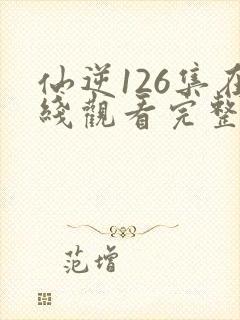 仙逆126集在
綫觀看完整
范增